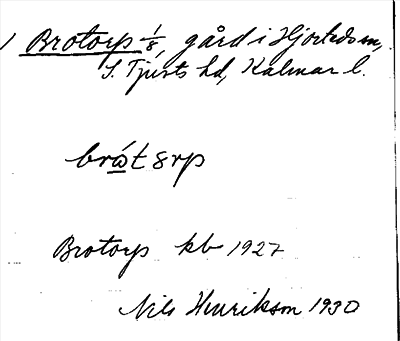 Brotorp 1/8, gård i Hjorteds sn,
S. Tjusts hd, Kalmar l.
brώt 8rp
Brotorp kb 1927
Nils Henrikson 1930